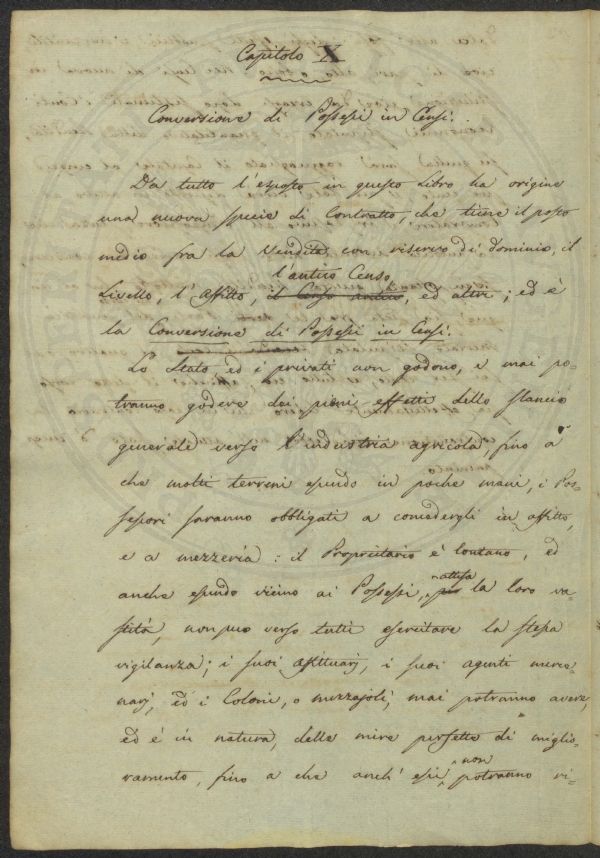 Capitolo X
Conversione di Possessi in Censi.
Da tutto l'esposto in questo Libro ha origine
una nuova specie di Contratto, che tiene il posto
medio fra la Vendita con riserva di dominio, il
l'antico Censo,
Livello, l'affitto, il Censo antico, ed altri; ed è
la Conversione di Possessi in Censi.
Lo Stato, ed i privati non godono, e mai po-
tranno godere dei pieni effetti dello slancio
generale verso l'industria agricola, fino a
che molti terreni essendo in poche mani, i Pos-
sessori saranno obbligati a concedergli in affitto,
e a mezzeria: il Proprietario è lontano, ed
anche essendo vicino ai Possessi, attesa la loro va-
stità, non può verso tutti esercitare la stessa
vigilanza; i suoi affittuarj, i suoi agenti merce-
narj, ed i Coloni, o mezzajoli, mai potranno avere,
ed è in natura, delle mire perfette di miglio-
ramento, fino a che anch'essi non potranno vi-